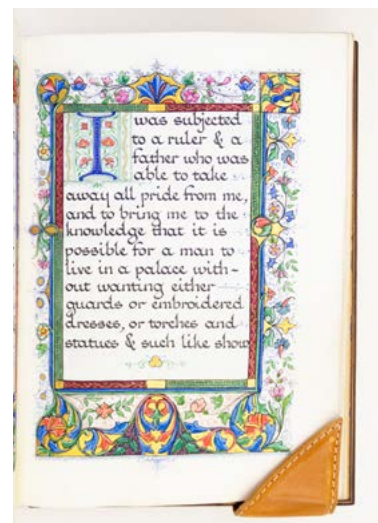 I was subjected
to a ruler & a
father who was
able to take
away all pride from me,
and to bring me to the
knowledge that it is
possible for a man to
live in a palace with-
out wanting either
guards or embroidered
dresses, or torches and
statues & such like show